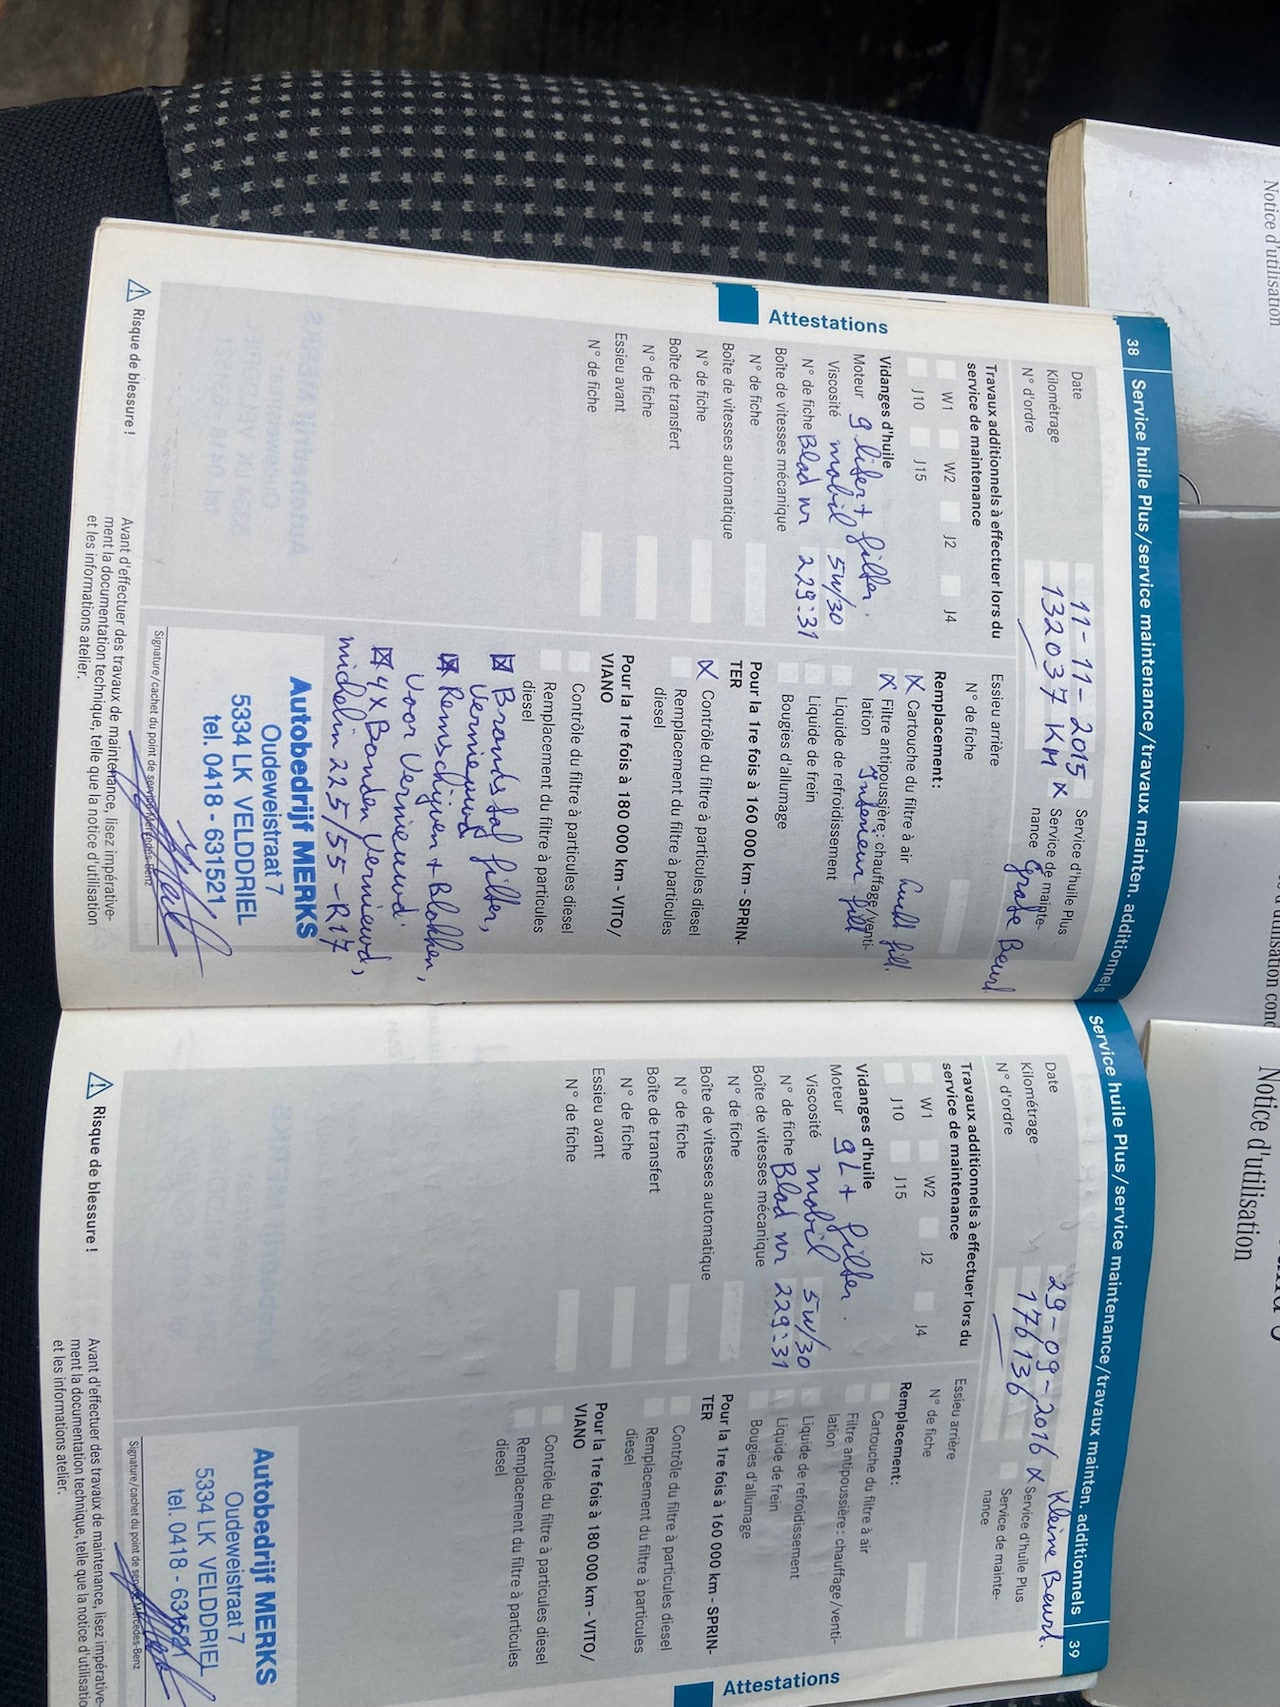 38 Service huile Plus/service maintenance/travaux mainten. additionnels
Attestations
Date 11-11-2015
Kilométrage 132037 KM
N° d'ordre
☓ Service d'huile Plus
Service de mainte-
nance grote Beurt
Travaux additionnels à effectuer lors du
service de maintenance
W1 W2 J2 J4
J10 J15
Vidanges d'huile
Moteur 9 liter + filter.
Viscosité mobil 5W/30
N° de fiche Blad nr 229.31
Boîte de vitesses mécanique
N° de fiche
Boîte de vitesses automatique
N° de fiche
Boîte de transfert
N° de fiche
Essieu avant
N° de fiche
Essieu arrière
N° de fiche
Remplacement:
☓ Cartouche du filtre à air
☓ Filtre antipoussière: chauffage/venti-
lation Interieur filt
Liquide de refroidissement
Liquide de frein
Bougies d'allumage
Pour la 1re fois à 160 000 km - SPRIN-
TER
☓ Contrôle du filtre à particules diesel
Remplacement du filtre à particules
diesel
Pour la 1re fois à 180 000 km - VITO/
VIANO
Contrôle du filtre à particules diesel
Remplacement du filtre à particules
diesel
☒ Brandstof filter,
Vernieuwd
☒ Remschijven + Blokken,
Voor Vernieuwd
☒ 4x Banden Vernieuwd,
michelin 225/55-R17
Autobedrijf MERKS
Oudeweistraat 7
5334 LK VELDDRIEL
tel. 0418 - 631521
Signature/cachet du point de service Mercedes-Benz
⚠ Risque de blessure !
Avant d'effectuer des travaux de maintenance, lisez impérative-
ment la documentation technique, telle que la notice d'utilisation
et les informations atelier.
Service huile Plus/service maintenance/travaux mainten. additionnels 39
Attestations
Kleine Beurt.
Date 29-09-2016
Kilométrage 176136
N° d'ordre
☓ Service d'huile Plus
Service de mainte-
nance
Travaux additionnels à effectuer lors du
service de maintenance
W1 W2 J2 J4
J10 J15
Vidanges d'huile
Moteur 9L + filter.
Viscosité mobil 5W/30
N° de fiche Blad nr 229.31
Boîte de vitesses mécanique
N° de fiche
Boîte de vitesses automatique
N° de fiche
Boîte de transfert
N° de fiche
Essieu avant
N° de fiche
Essieu arrière
N° de fiche
Remplacement:
Cartouche du filtre à air
Filtre antipoussière: chauffage/venti-
lation
Liquide de refroidissement
Liquide de frein
Bougies d'allumage
Pour la 1re fois à 160 000 km - SPRIN-
TER
Contrôle du filtre à particules diesel
Remplacement du filtre à particules
diesel
Pour la 1re fois à 180 000 km - VITO/
VIANO
Contrôle du filtre à particules diesel
Remplacement du filtre à particules
diesel
Autobedrijf MERKS
Oudeweistraat 7
5334 LK VELDDRIEL
tel. 0418 - 631521
Signature/cachet du point de service Mercedes-Benz
⚠ Risque de blessure !
Avant d'effectuer des travaux de maintenance, lisez impérative-
ment la documentation technique, telle que la notice d'utilisation
et les informations atelier.
Notice d'utilisation
Notice d'utilisation